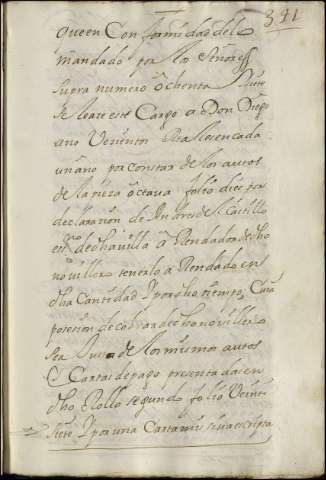 341
que en Conformidad delo
mandado por los Señores
supra numero ochenta y siete
se le a este Cargo a Don Diego
ano Veinte
un año por constar de los autos
de la pieza octava folio diez por
declaracion de Andres del Castillo
es.no de dha villa a Rendador de dho
novillero tenerlo a Rendado en
dha Cantidad y por dho tiempo, Cuia
posesion de cobrar de dho novillero
sea de los mismos autos
y Cartas de pago presentadas en
dho Rollo segundo folio Veinte y
siete y por una Carta mision escripta